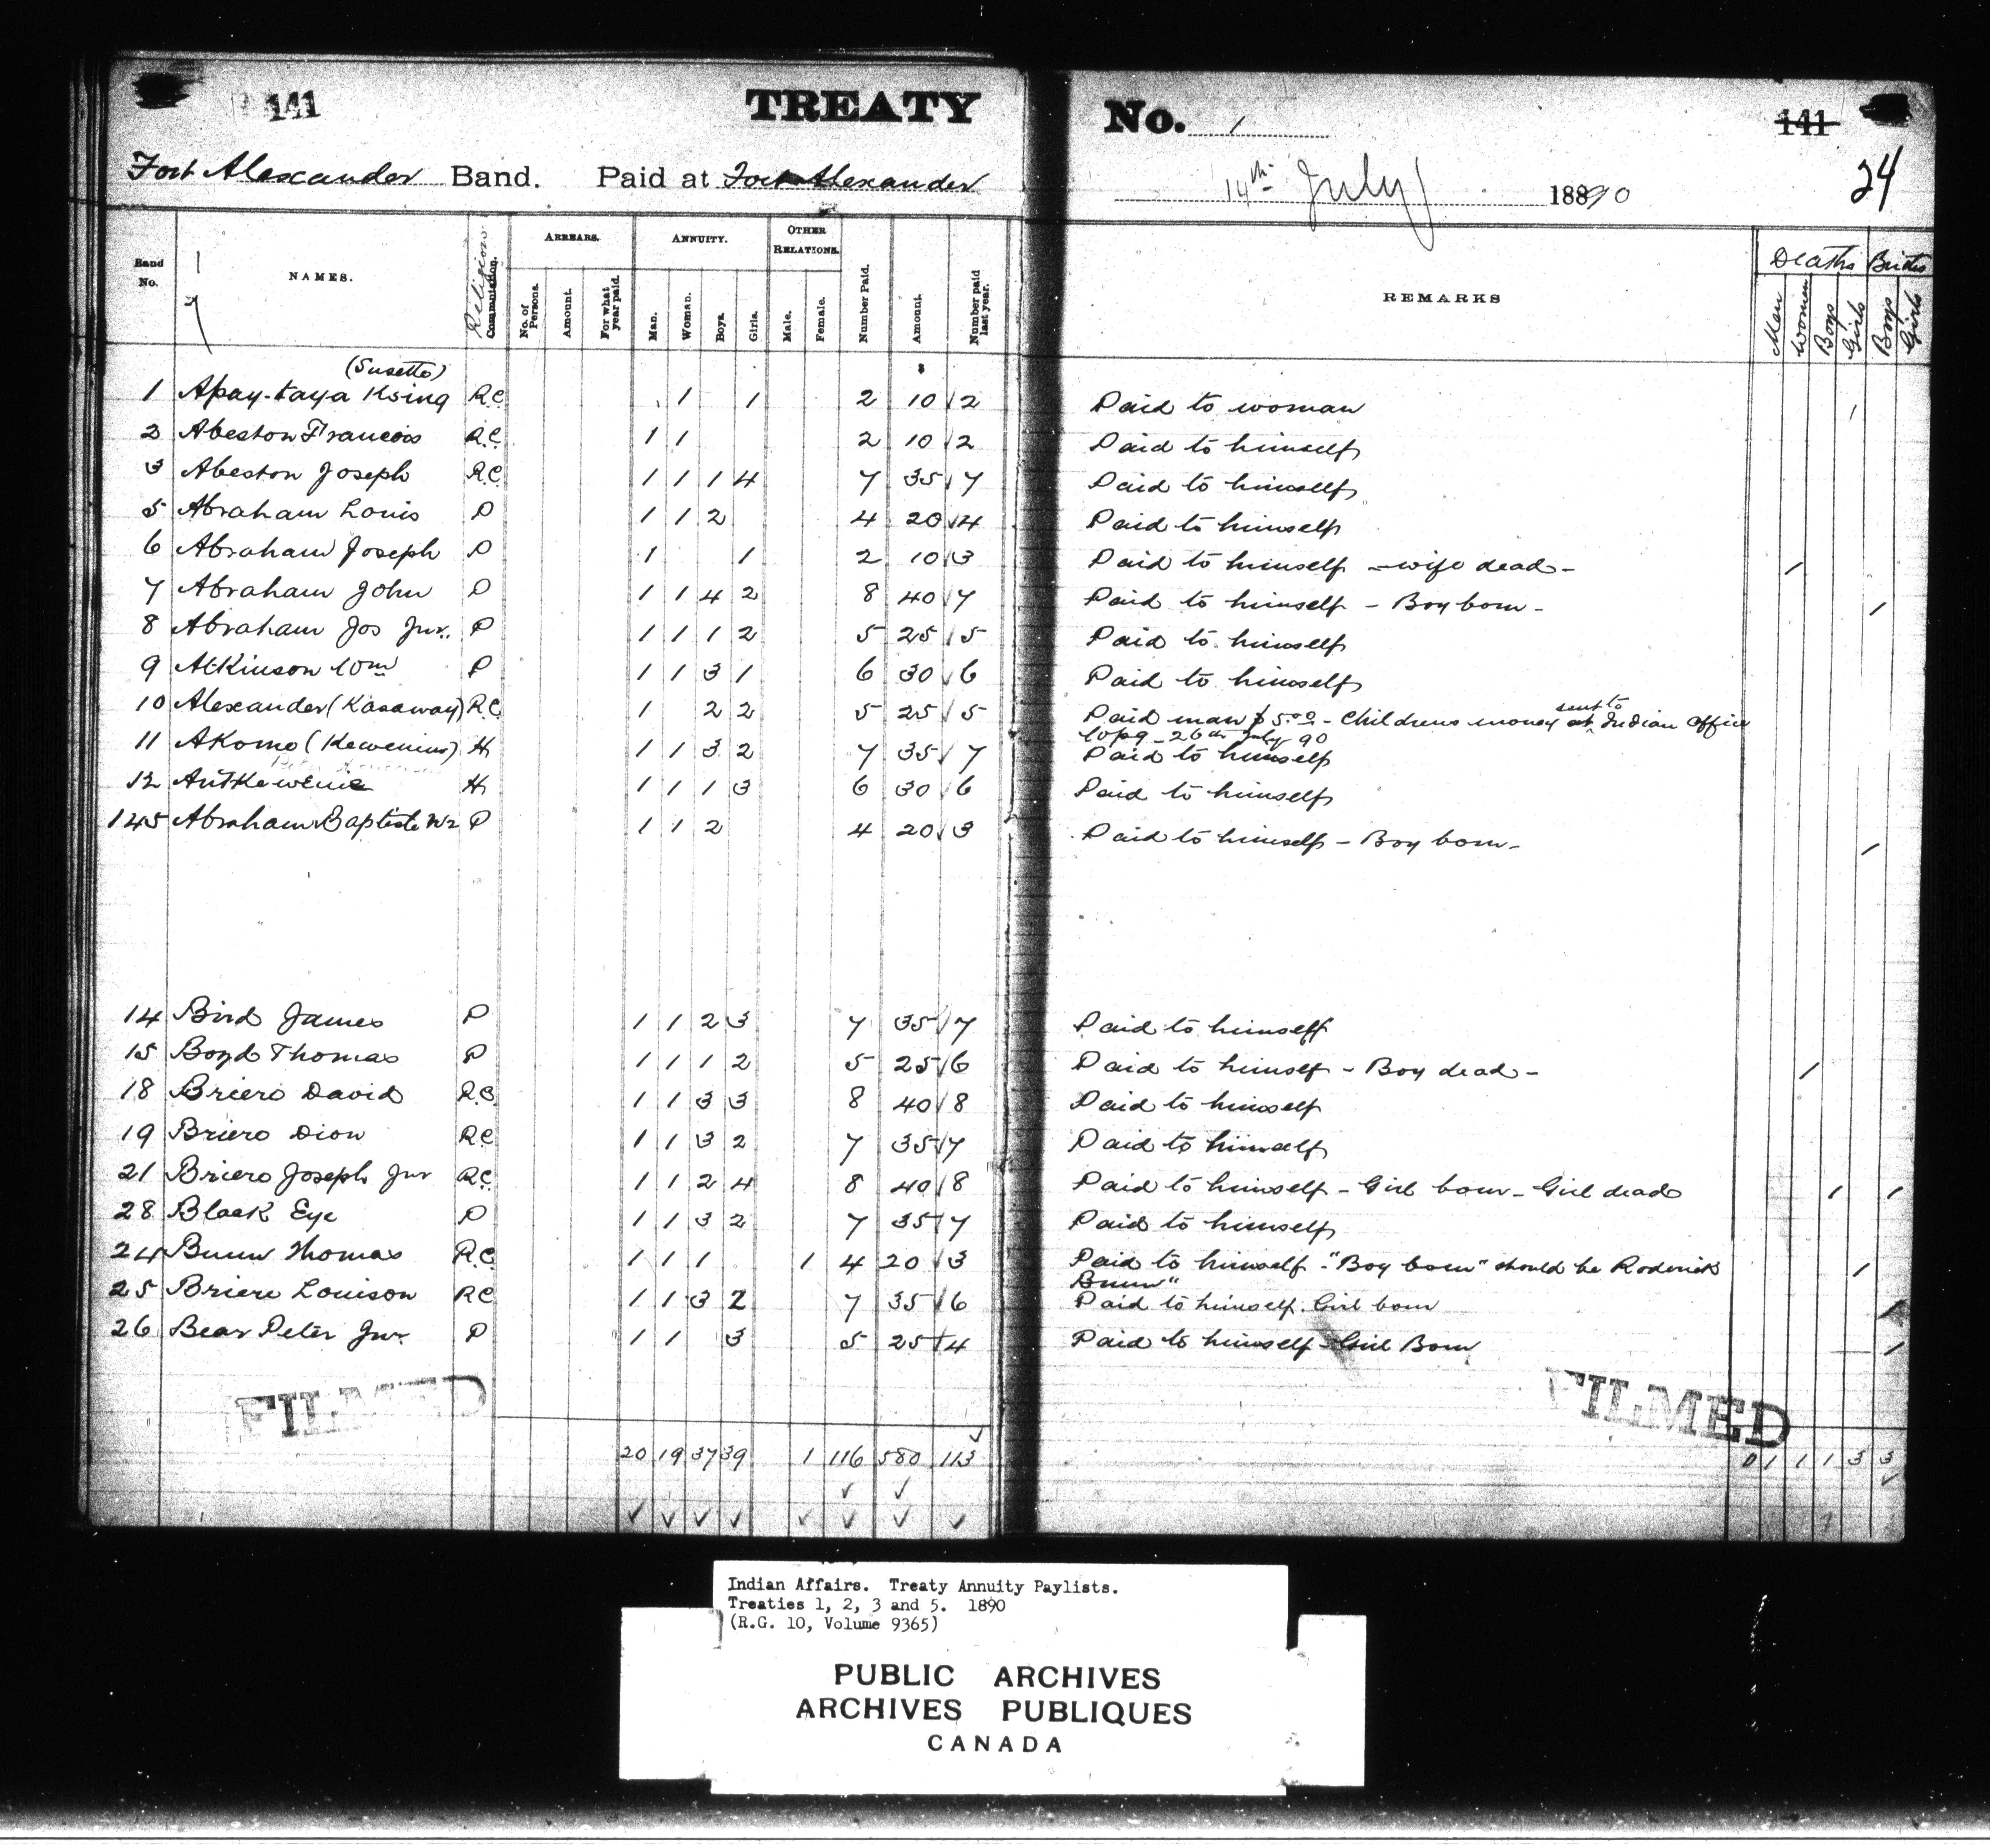 141 TREATY No. 1 141
Fort Alexander Band. Paid at Fort Alexander 14th July 18890 24
Band No. NAMES. Religion Commutation. ARREARS. No. of Persons. Amount. For what year paid. ANNUITY. Man. Woman. Boys. Girls. OTHER RELATIONS. Male. Female. Number Paid. Amount. Number paid last year. REMARKS Deaths Men Women Boys Girls Births Boys Girls
(Susette)
1 Apay-taya Ksing R.C. 1 1 2 10 2 Paid to woman 1
2 Abeston Francois R.C. 1 1 2 10 2 Paid to himself
3 Abeston Joseph R.C. 1 1 1 4 7 35 7 Paid to himself
5 Abraham Louis P 1 1 2 4 20 4 Paid to himself
6 Abraham Joseph P 1 1 2 10 3 Paid to himself - wife dead - 1
7 Abraham John P 1 1 4 2 8 40 7 Paid to himself - Boy born - 1
8 Abraham Jos Jnr. P 1 1 1 2 5 25 5 Paid to himself
9 Atkinson Wm P 1 1 3 1 6 30 6 Paid to himself
10 Alexander (Kasaway) R.C. 1 2 2 5 25 5 Paid man $5.00 - Childrens money sent to at Indian Office
Wpg - 26th July 90
11 Akomo (Kewenius) H 1 1 3 2 7 35 7 Paid to himself
12 H 1 1 1 3 6 30 6 Paid to himself
145 Abraham Baptiste P 1 1 2 4 20 3 Paid to himself - Boy born - 1
14 Bird James P 1 1 2 3 7 35 7 Paid to himself
15 Boyd Thomas P 1 1 1 2 5 25 6 Paid to himself - Boy dead - 1
18 Briero David R.C. 1 1 3 3 8 40 8 Paid to himself
19 Briero Dion R.C. 1 1 3 2 7 35 7 Paid to himself
21 Briero Joseph Jnr R.C. 1 1 2 4 8 40 8 Paid to himself - Girl born - Girl dead 1 1
28 Black Eye P 1 1 3 2 7 35 7 Paid to himself
24 Bunn Thomas R.C. 1 1 1 1 4 20 3 Paid to himself - "Boy born" should be Roderick 1
Bunn"
25 Briere Louison R.C. 1 1 3 2 7 35 6 Paid to himself. Girl born 1
26 Bear Peter Jnr. P 1 1 3 5 25 4 Paid to himself - Girl Born 1
FILMED FILMED
20 19 37 39 1 116 580 113 0 1 1 1 3 3
Indian Affairs. Treaty Annuity Paylists.
Treaties 1, 2, 3 and 5. 1890
(R.G. 10, Volume 9365)
PUBLIC ARCHIVES
ARCHIVES PUBLIQUES
CANADA